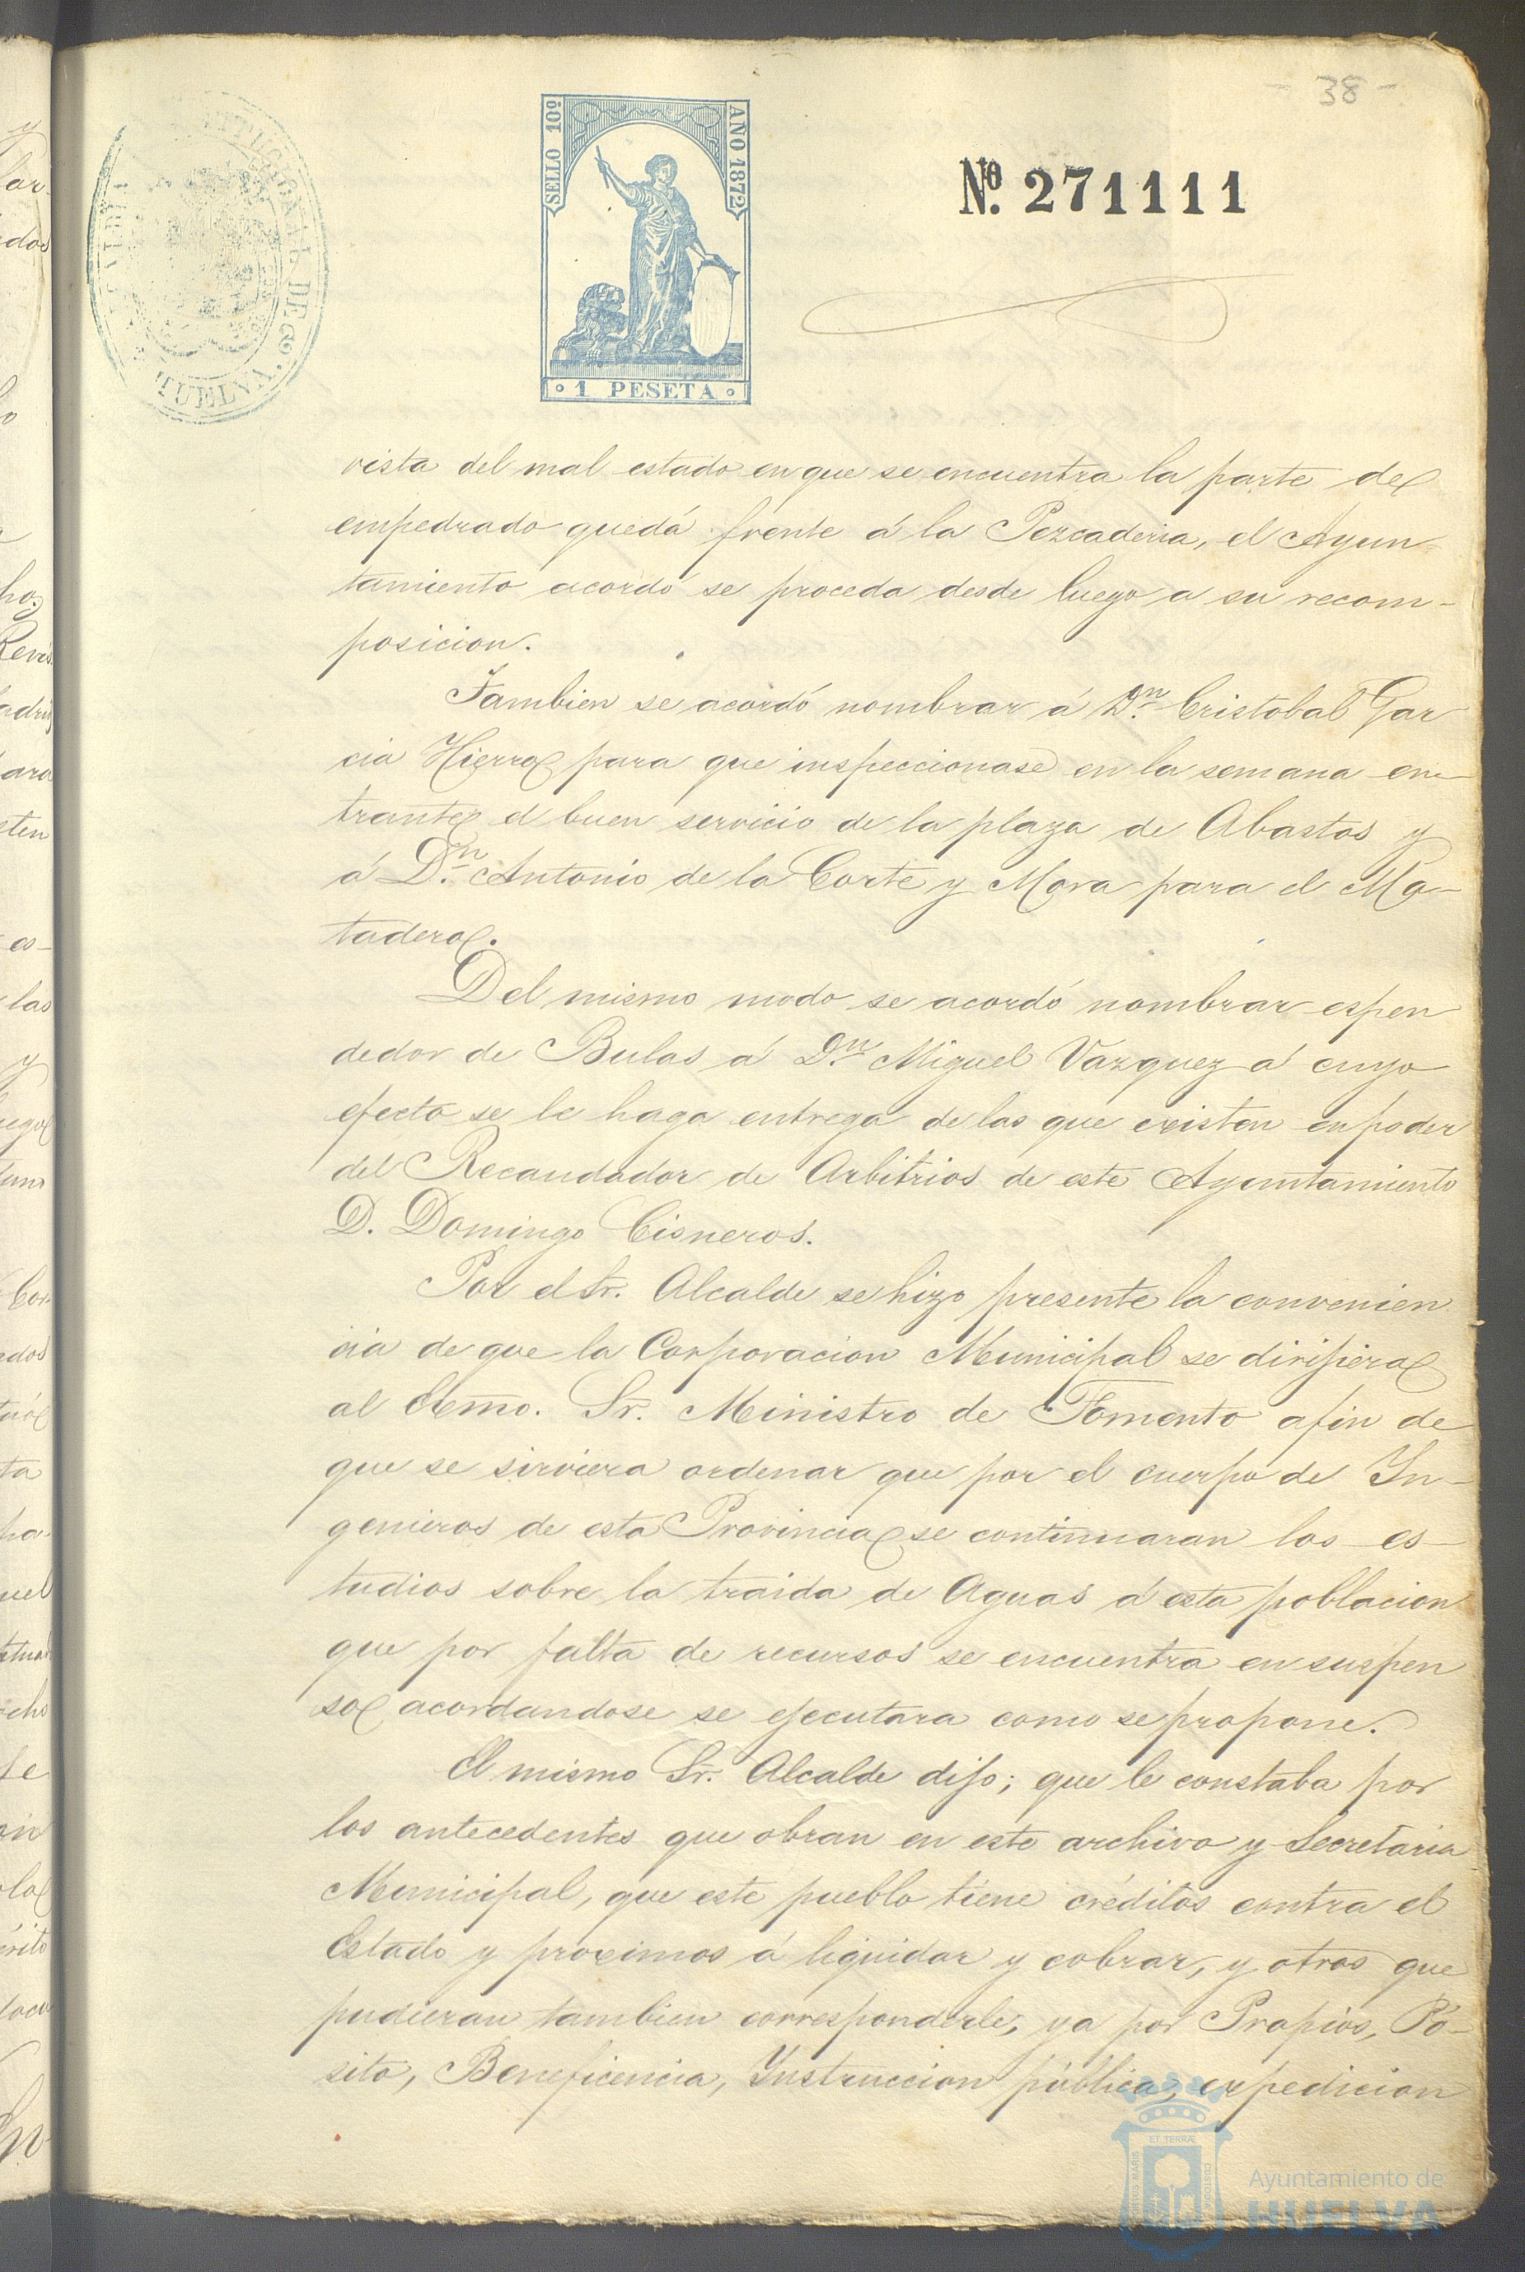 - 38 -
SELLO 10º
AÑO 1872
1 PESETA
Nº. 271111
HUELVA
vista del mal estado en que se encuentra la parte de
empedrado quedá frente á la Pezcaderia, el Ayun
tamiento acordó se proceda desde luego a su recom-
posicion.
Tambien se acordó nombrar á Dn. Cristobal Gar
cia Hierro para que inspeccionase en la semana en-
trante el buen servicio de la plaza de Abastos y
á Dn. Antonio de la Corte y Mora para el Ma-
tadero.
Del mismo modo se acordó nombrar espen
dedor de Bulas á Dn. Miguel Vazquez á cuyo
efecto se le haga entrega de las que existen en poder
del Recaudador de Arbitrios de este Ayuntamiento
D. Domingo Cisneros.
Por el Sr. Alcalde se hizo presente la convenien
cia de que la Corporacion Municipal se dirijiera
al Esmo. Sr. Ministro de Fomento afin de
que se sirviera ordenar que por el cuerpo de In-
genieros de esta Provincia se continuaran los es-
tudios sobre la traida de Aguas á esta poblacion
que por falta de recursos se encuentra en suspen
so acordandose se ejecutara como se propone.
El mismo Sr. Alcalde dijo; que le constaba por
los antecedentes que obran en este archivo y Secretaria
Municipal, que este pueblo tiene créditos contra el
Estado y proximos á liquidar y cobrar, y otros que
pudieran tambien corresponderle, ya por Propios, Pó-
sito, Beneficencia, Instruccion pública, expedicion
Ayuntamiento de
HUELVA